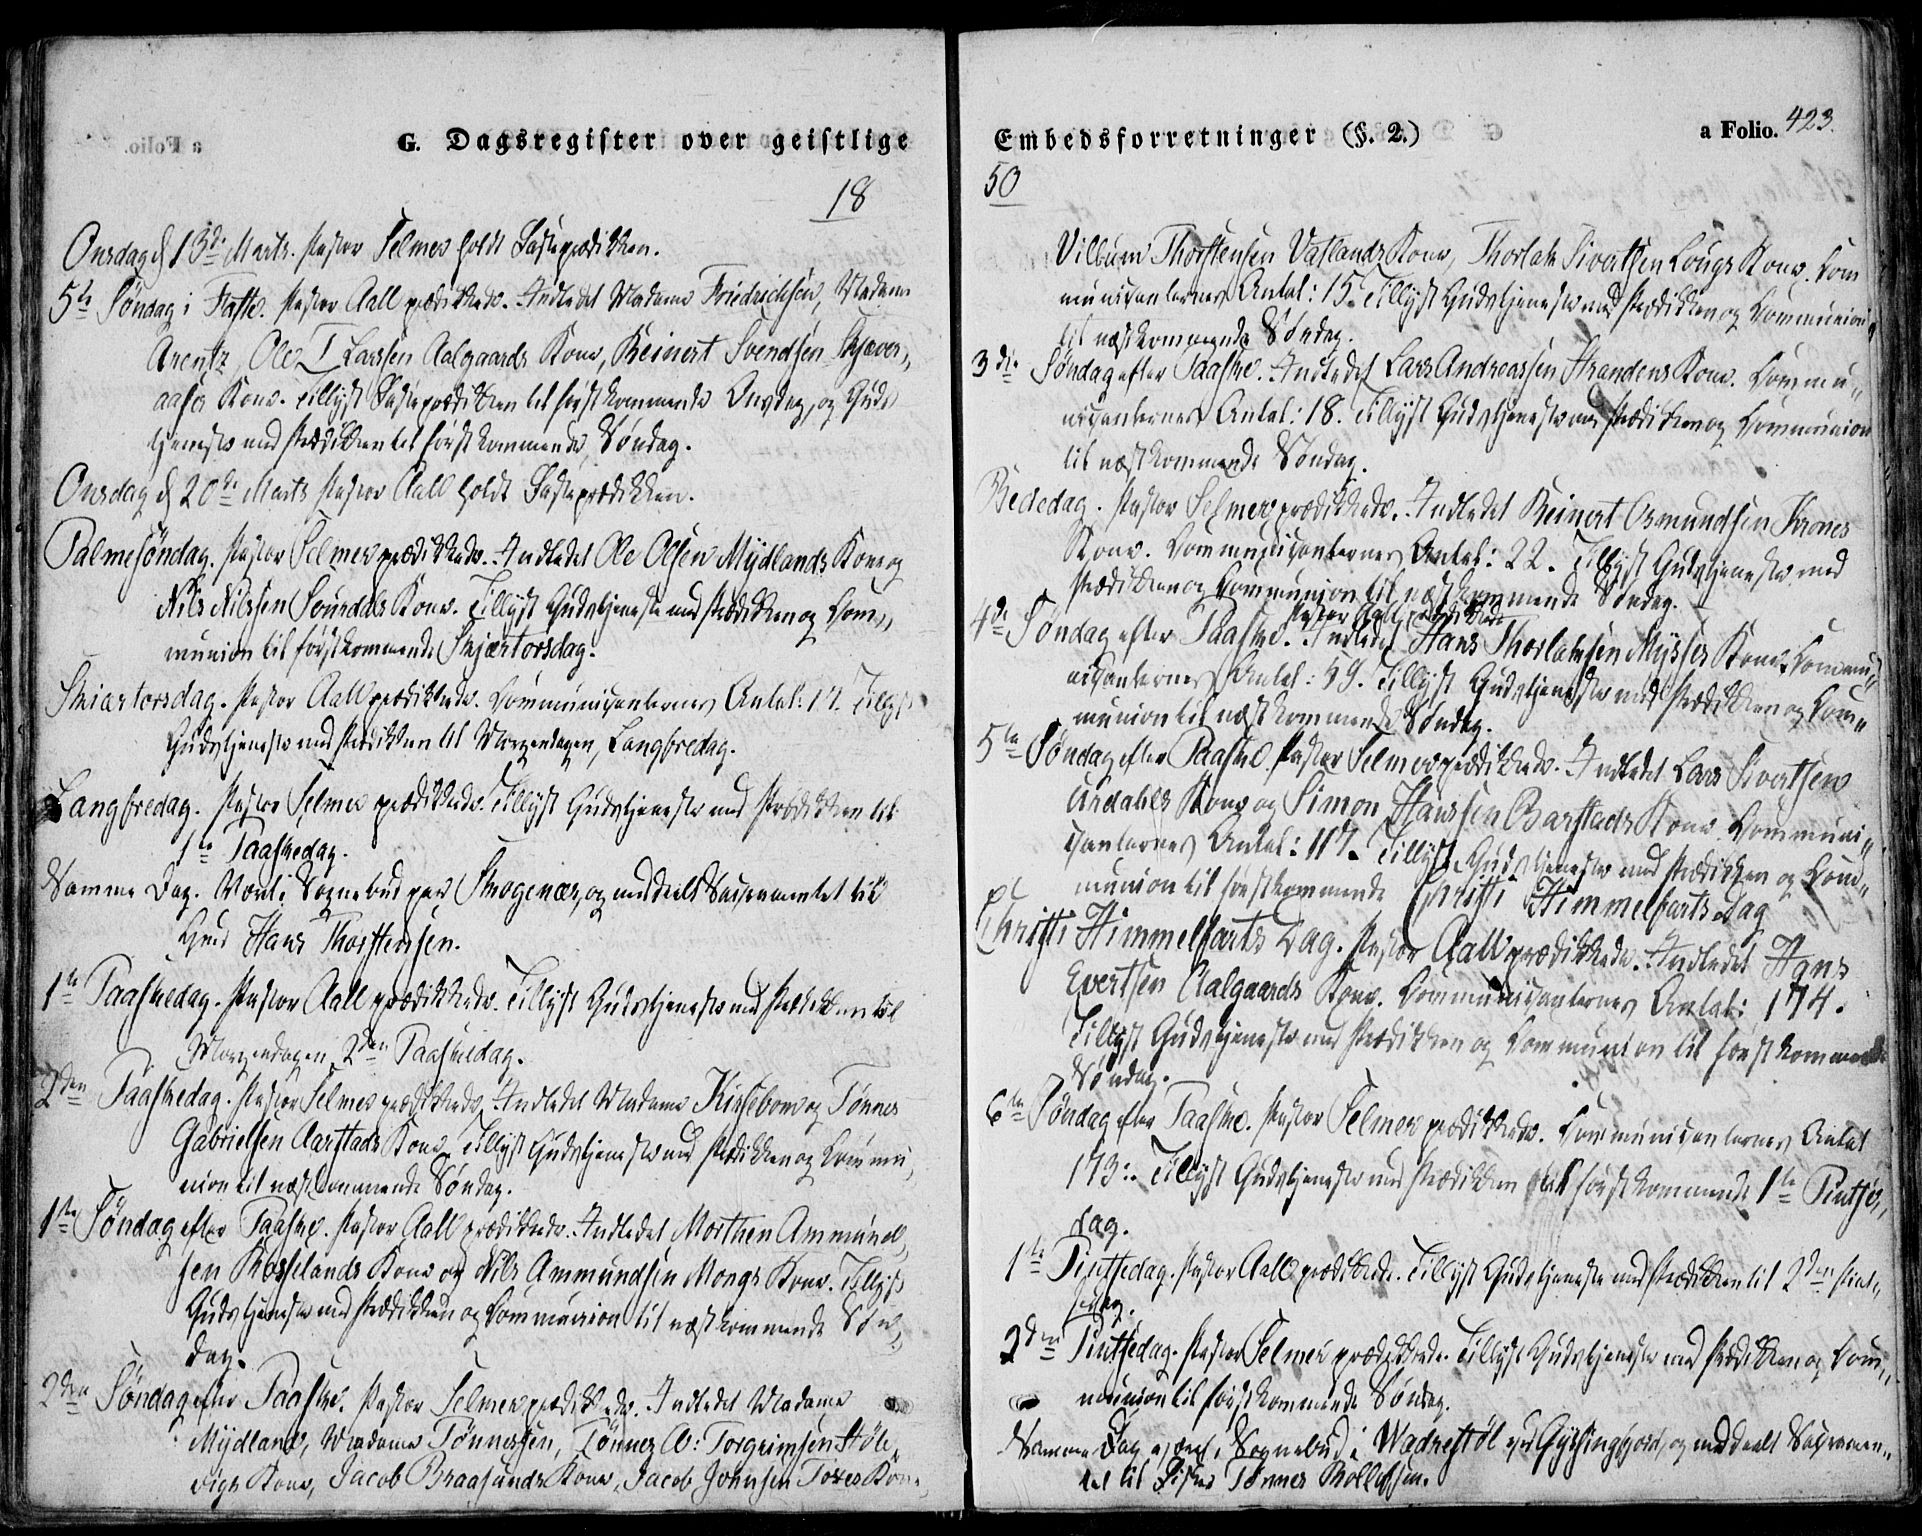 G. Dagsregister over geistlige
18
Onsdag d 13de Marts. Pastor Selmer holdt Fasteprædikken.
5te Søndag i Faste. Pastor Aall prædikkede. Indledet Madame Friedrichsen, Madame
Arentz, Ole T Larssen Aalgaards Kone, Reinert Svendsen Skjæver,,
aases Kone. Tillyst Fasteprædikken til førstkommende Onsdag, og Guds
tjeneste med Prædikken til førstkommende Søndag.
Onsdag d 20de Marts Pastor Aall holdt Fasteprædikken.
Palmesøndag. Pastor Selmer prædikkede. Indledet Ole Olsen Mydlands Kone og
Nils Nilssen Sourdals Kone. Tillyst Gudstjeneste med Prædikken og Com,,
munion til førstkommende Skjærtorsdag.
Skiærtorsdag. Pastor Aall prædikkede. Communicanternes Antal: 17. Tillyst
Gudstjeneste med Prædikken til Morgendagen, Langfredag.
Langfredag. Pastor Selmer prædikkede. Tillyst Gudstjeneste med Prædikken til
1te Paaskedag.
Samme Dag. Været i Sognebud paa Skogenæs, og meddeelt Sacramentet til
Hans Thorstensen.
1te Paaskedag. Pastor Aall prædikkede. Tillyst Gudstjeneste med Prædikken til
Morgendagen 2den Paaskedag.
2den Paaskedag. Pastor Selmer prædikkede. Indledet Madame Kirsebom og Tønnes
Gabrielsen Aarstads Kone. Tillyst Gudstjeneste med Prædikken og Commu,,
nion til næstkommende Søndag.
1ste Søndag efter Paaske. Pastor Aall prædikkede. Indledet Morthen Ammund,,
sen Rosselands Kone og Nils Ammundsen Mongs Kone. Tillyst
Gudstjeneste med Prædikken og Communion til næstkommende Søn,,
dag.
2den Søndag efter Paaske. Pastor Selmer prædikkede. Indledet Madame
Mydland, Madame Tønnessen, Tønnes A: Torgrimsen Støle,
vigs Kone, Jacob Braasunds Kone, Jacob Johnsen Toxes Kone,
Embedsforretninger (§. 2.)
a Folio. 423.
50
Vilbum Thorstensen Vatlands Kone, Thorlak Sivertsen Lougs Kone. Com
municanternes Antal: 15. Tillyst Gudstjeneste med Prædikken og Communion
til næstkommende Søndag.
3die Søndag efter Paaske. Indledet Lars Andreassen Strandens Kone. Commu,,
nicanternes Antal: 18. Tillyst Gudstjeneste med Prædikken og Communion
til næstkommende Søndag.
Bededag. Pastor Selmer prædikkede. Indledet Reinert Osmundsen Krones
Kone. Communicanternes Antal: 22. Tillyst Gudstjeneste med
Prædikken og Communion til næstkommende Søndag.
Pastor Aall prædikkede
4de Søndag efter Paaske. Indledet Hans Thorlaksen Mysses Kone. Commu,,
nicanternes Antal: 59. Tillyst Gudstjeneste med Prædikken og Com,,
munion til næstkommende Søndag.
5te Søndag efter Paaske. Pastor Selmer prædikkede. Indledet Lars Sivertsen
Urdahls Kone og Simon Hanssen Barstads Kone. Communi,,
canternes Antal: 117. Tillyst Gudstjeneste med Prædikken og Com,,
munion til førstkommende Christi Himmelfartsdag
Christi Himmelfarts Dag. Pastor Aall prædikkede. Indledet Hans
Evertsen Aalgaards Kone. Communicanternes Antal: 174.
Tillyst Gudstjeneste med Prædikken og Communion til førstkommende
Søndag.
6te Søndag efter Paaske. Pastor Selmer prædikkede. Communicanternes Antal
173. Tillyst Gudstjeneste med Prædikken til førstkommende 1te Pintse,,
dag.
1te Pintsedag. Pastor Aall prædikkede. Tillyst Gudstjeneste med Prædikken til 2den Pint,,
sedag.
2den Pintsedag. Pastor Selmer prædikkede. Tillyst Gudstjeneste med Prædikken og Com,,
munion til førstkommende Søndag.
Samme Dag været i Sognebud i Wadrestøl ved Gydsingfjord, og meddeelt Sacramen,,
tet til Tønnes Rollefsen.